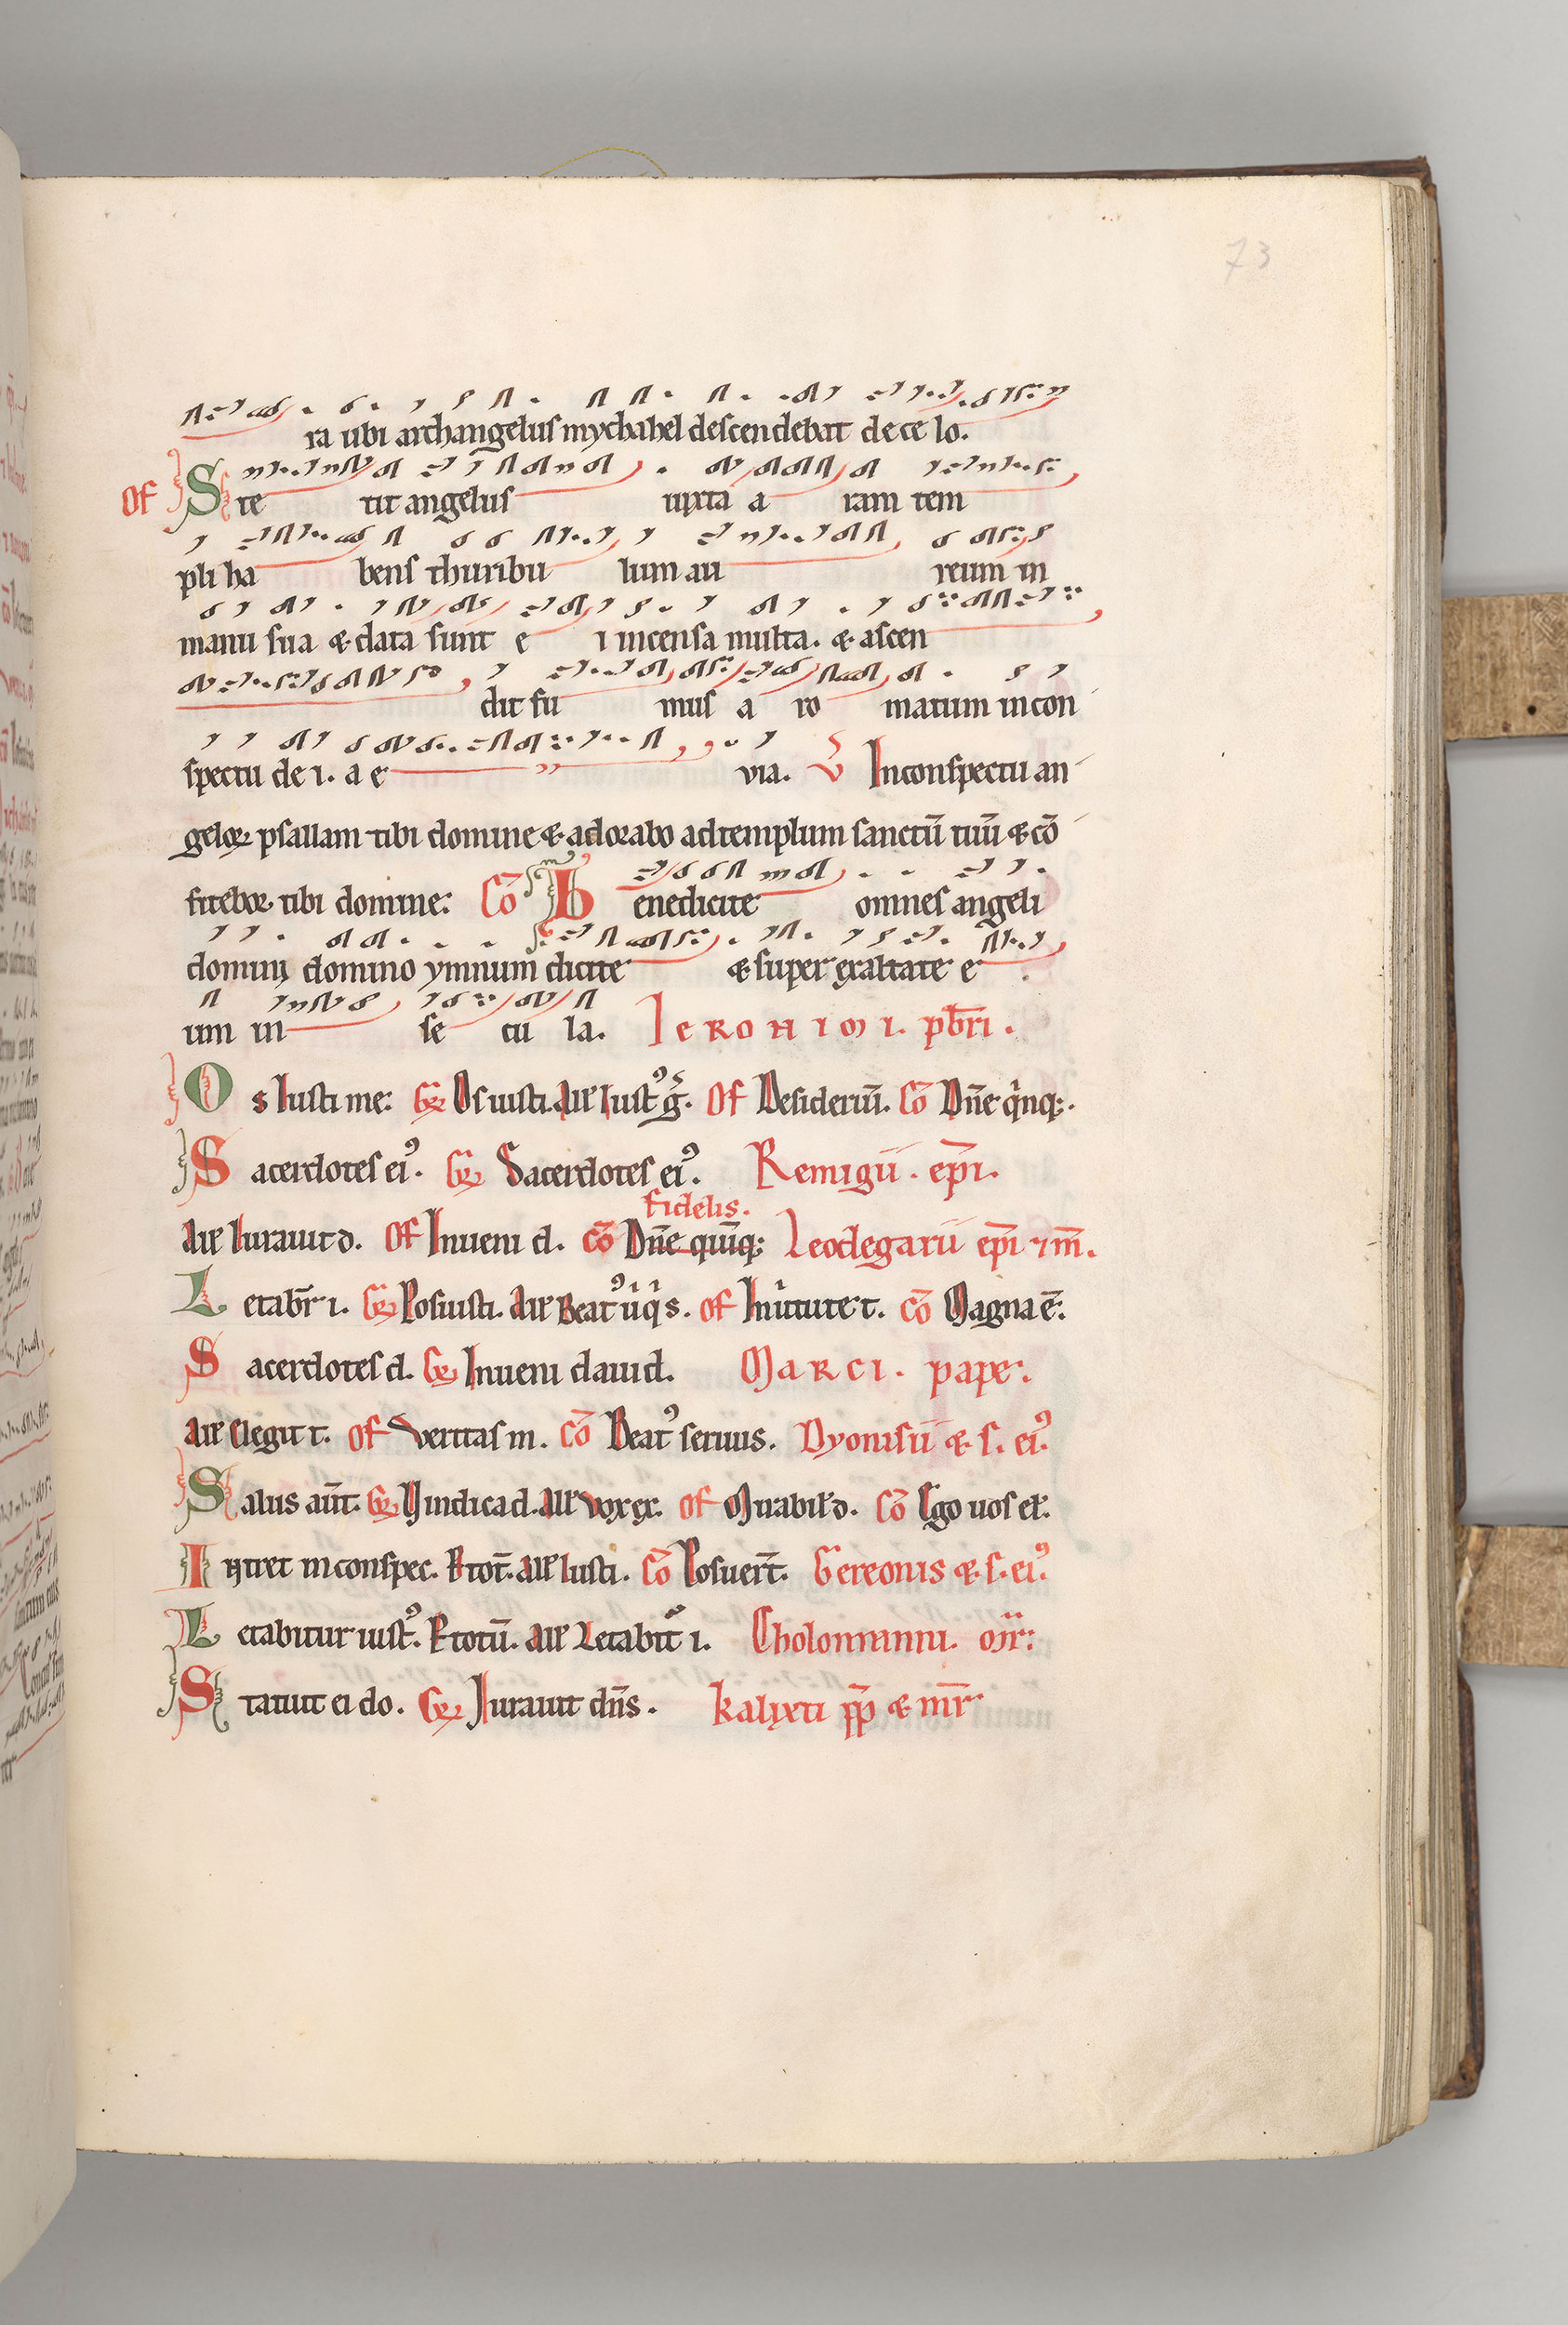 73
ra ubi archangelus mychahel descendebat de ce lo.
Of Ste tit angelus iuxta a ram tem
pli ha bens thuribu lum au reum in
manu sua & data sunt e i incensa multa. & ascen
dit fu mus a ro matum in con
spectu de i. a e via. V Inconspectu an
geloꝝ psallam tibi domine & adorabo ad templum sanctū tuū & cō
fitebor tibi domine: Cō Benedicite omnes angeli
domini domino ymnum dicite & super exaltate e
um in se cu la. IERONIMI. pbr̄i.
Os Iusti me: Gꝝ Os iusti. All̄e Iustꝰ g. Of Desideriū. Cō Dn̄e qinq;.
Sacerdotes eiꝰ. Gꝝ Sacerdotes eiꝰ. Remigii. ep̄i.
fidelis.
All̄e Iurauit d. Of Inueni d. Cō Dn̄e quīq; Leodegarii ep̄i ⁊ m̄.
Letabr̄ i. Gꝝ Posuisti. All̄e Beatꝰ uiqi s. Of Inuitute t. Cō Magna ē.
Sacerdotes d. Gꝝ Inueni dauid. MARCI. pape.
All̄e Elegit t. Of Veritas m. Cō Beatꝰ seruus. Dyonisii & s. eiꝰ.
Salus aūt. Gꝝ Vindica d. All̄e Vox ex. Of Mirabil̄ d. Cō Ego uos el.
Intret in conspec. All̄e Iusti. Cō Posuer̄t. Gereonis & s. eiꝰ.
Letabitur iustꝰ. totū. All̄e Letabit i. Cholomanni. mr̄.
Statuit ei do. Gꝝ Iurauit dn̄s. Kalixti pp̄ & mr̄